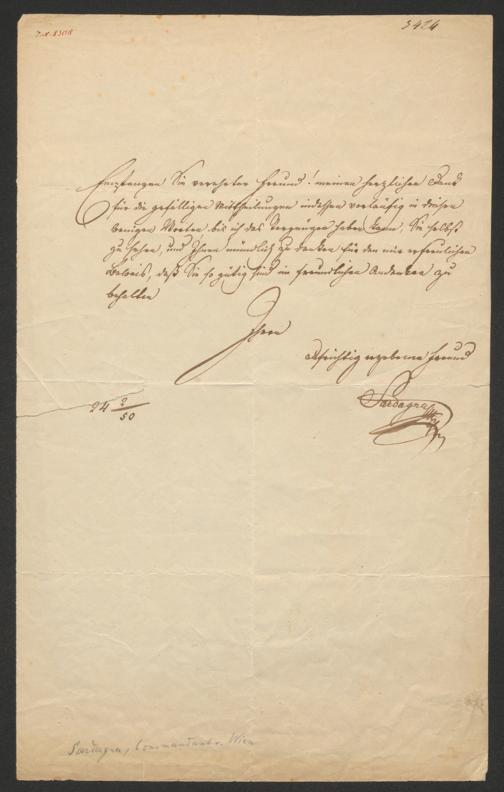 3424
Empfangen Sie verehrter Freund! meinen herzlichen Dank
für die gefälligen Mittheilungen indessen vorläufig in diesen
wenigen Worten bis ich das Vergnügen haben kann, Sie selbst
zu sehen, und Ihnen mündlich zu danken für den mir erfreulichen
Beweis, daß Sie so gütig sind im freundlichen Andenken zu
behalten
Ihren
Aufrichtig ergebenen Freund
Sardagna
24 2/50
Sardagna, Commandant v. Wien